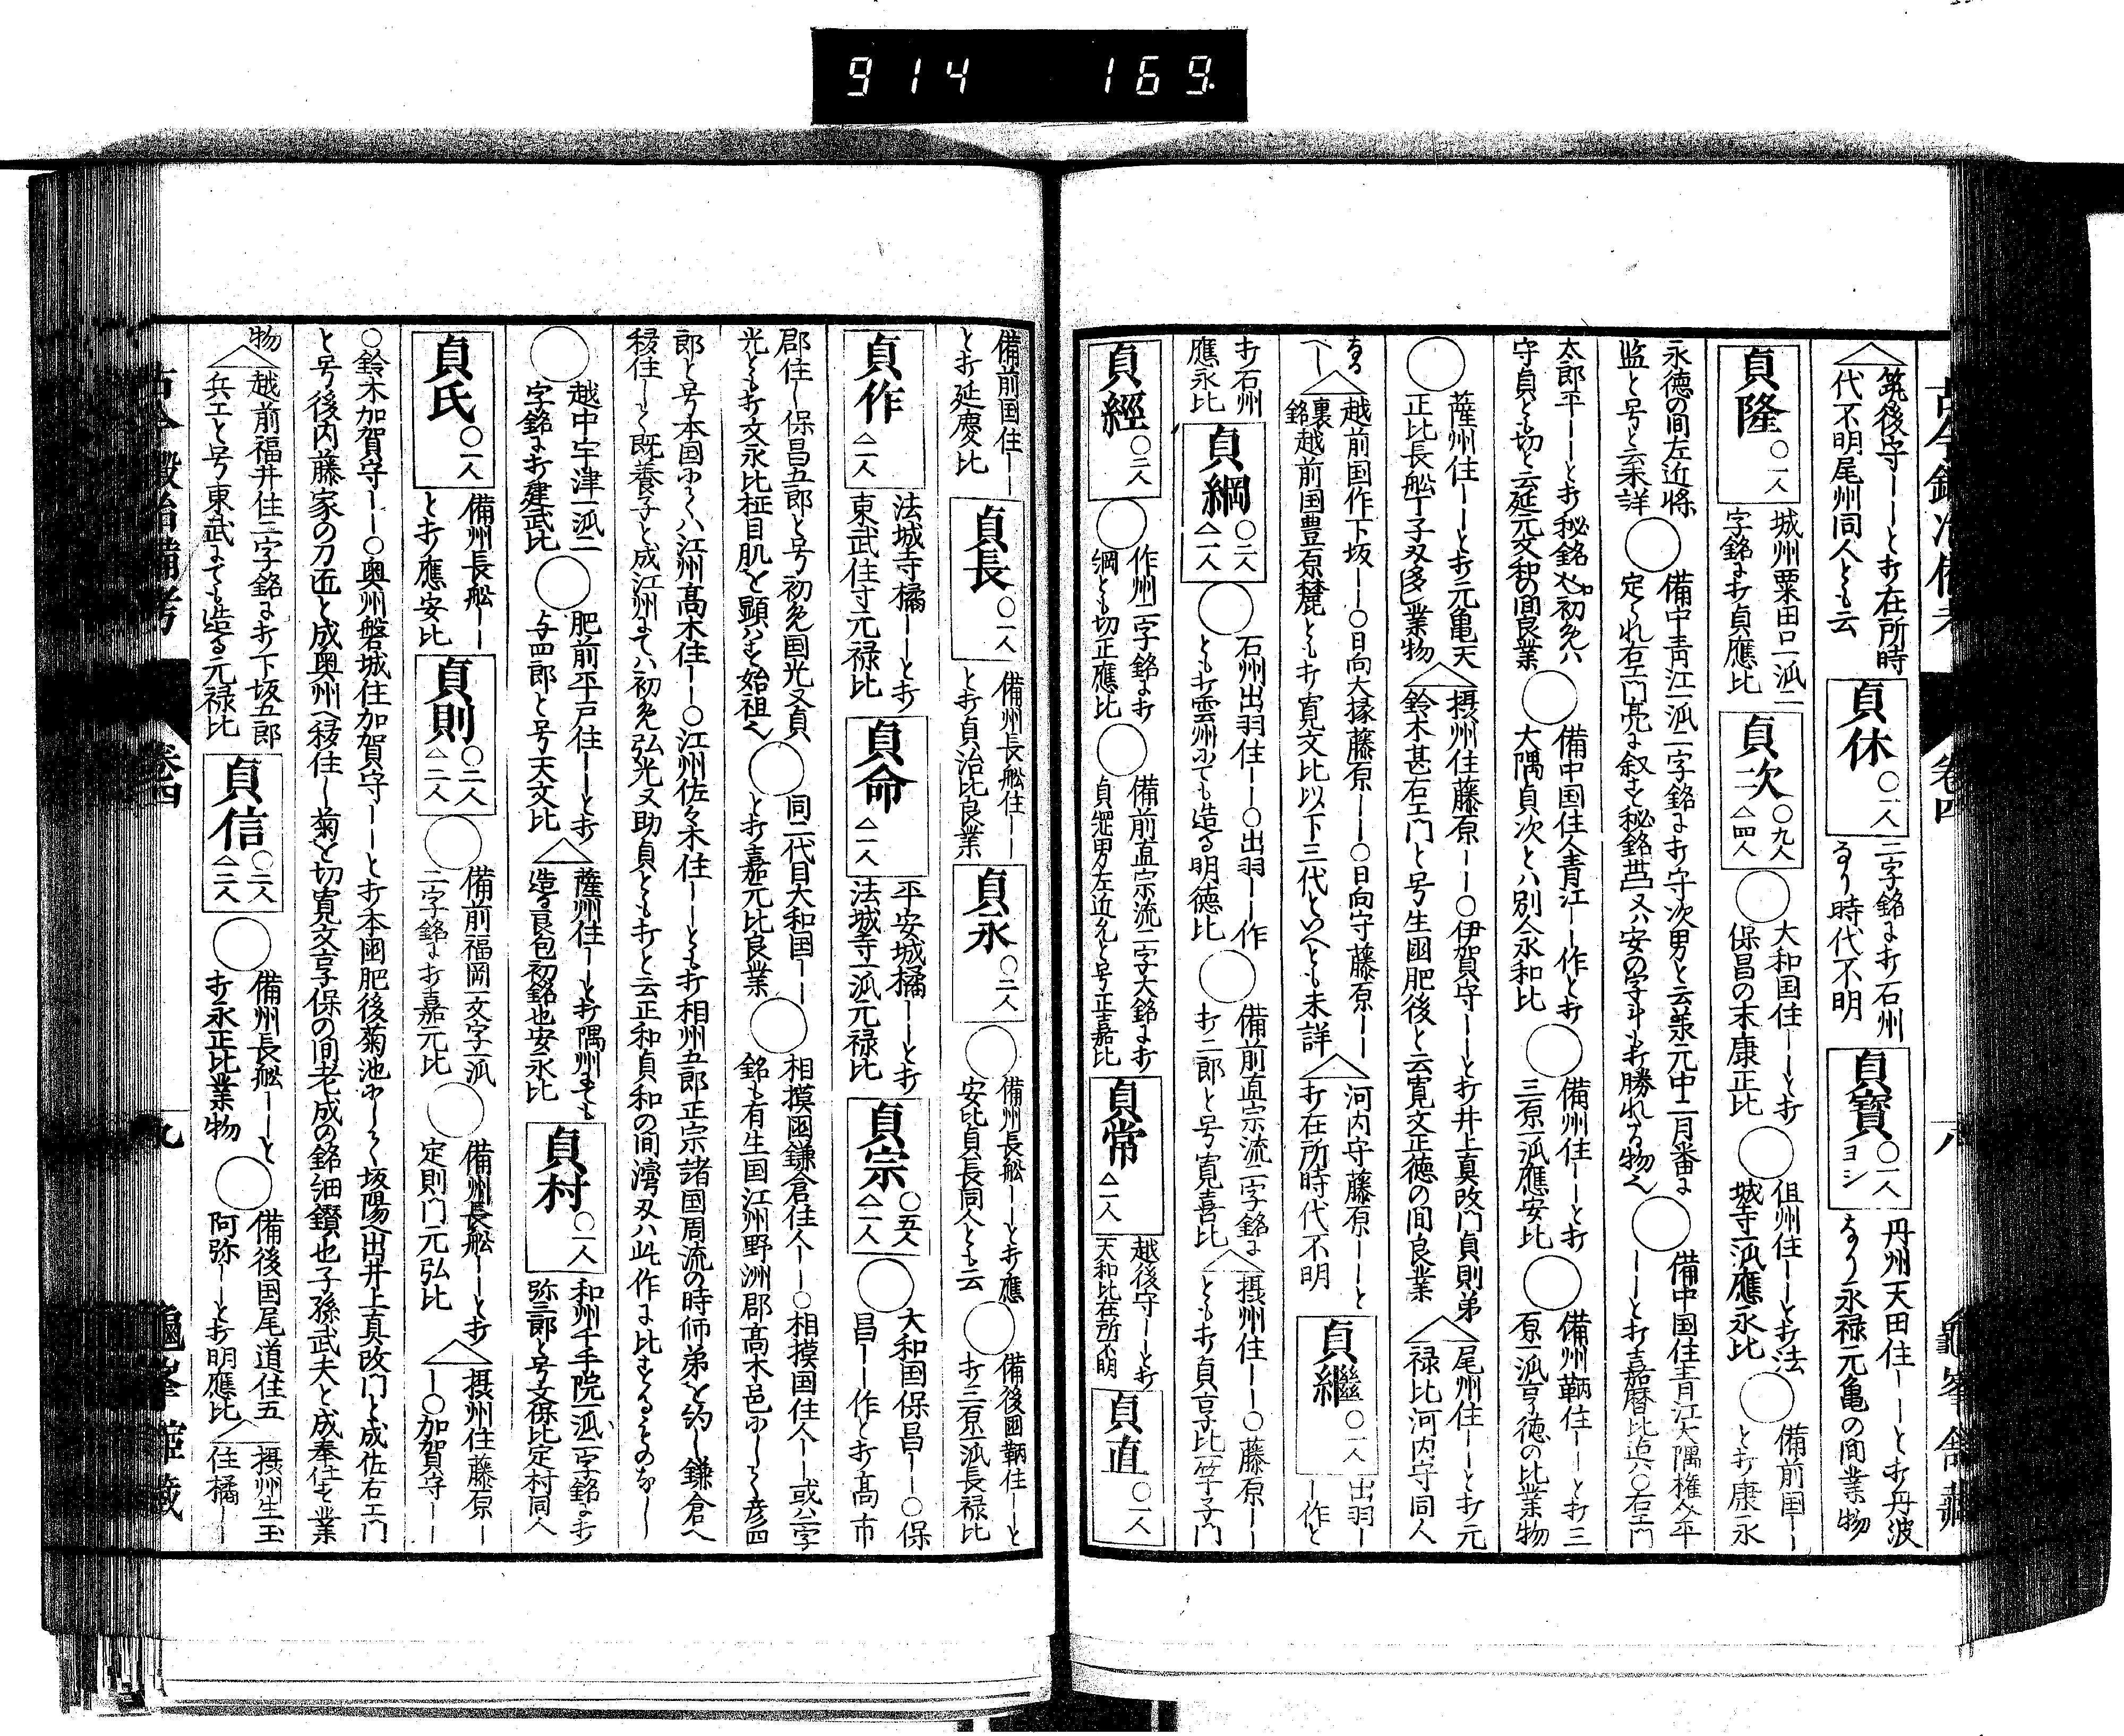 914 169
古今鍛冶備考 巻四 八 龜峯館藏
△筑後守ーーと打在所時
代不明尾州同人とも云
貞休 ○一人
二字銘に打石州
なり時代不明
貞寶 ○一人 ヨシ
丹州天田住ーーと打丹波
なり永禄元亀の間業物
貞隆 ○一人
城州粟田口一派二
字銘に打貞應比
貞次 ○九人 △四人
○大和国住ーーと打
保昌の末康正比
○但州住ーーと打法
城寺一派應永比
○備前国ー
と打康永
永徳の間左近將
監と号と云未詳
○備中青江一派二字銘に打守次男と云
○備中国住青江大隅権介平
ーーと打嘉暦比
太郎平ーーと打秘銘
守貞とも切と云延元文和の間良業
○備中国住人青江ーー作と打
大隅貞次とハ別人永和比
○備州住ーーと打
三原一派應安比
○備州鞆住ーーと打三
原一派亨徳の比業物
○薩州住ーーと打元亀天
正比長船丁子刄多し業物
△摂州住藤原ーー○伊賀守ーーと打井上真改門貞則弟
鈴木甚右エ門と号生國肥後と云寛文正徳の間良業
△尾州住ーーと打元
禄比河内守同人
なる
べし
△越前国作下坂ーー○日向大掾藤原ーー○日向守藤原ーー
裏銘越前国豊原麓とも打寛文比以下三代といへとも未詳
△河内守藤原ーーと
打在所時代不明
貞繼 ○一人
出羽ー
ー作と
打石州
應永比
貞綱 ○二人 △一人
○石州出羽住ーー○出羽ーー作
とも打雲州にても造る明徳比
○備前直宗流二字銘に
打二郎と号寛喜比
△摂州住ーー○藤原ーー
とも打貞享比一竿子門
貞經 ○三人
○作州二字銘に打
綱とも切正應比
○備前直宗流二字大銘に打
貞縄男左近允と号正嘉比
貞常 △一人
越後守ーーと打
天和比在所不明
貞直 ○一人
備前国住ーー
と打延慶比
貞長 ○一人
備州長船住ーー
と打貞治比良業
貞永 ○三人
○備州長船ーーと打應
安比貞長同人とも云
○備後國鞆住ーーと
打三原一派長禄比
貞作 △一人
法城寺橘ーーと打
東武住寸元禄比
貞命 △一人
平安城橘ーーと打
法城寺一派元禄比
貞宗 ○五人 △一人
○大和国保昌ーー○保
昌ーー作と打高市
郡住し保昌五郎と号初名国光又貞
光とも打文永比柾目肌を顕ハす始祖也
○同二代目大和国ーー
と打嘉元比良業
○相摸国鎌倉住人ーー○相摸国住人ーー或ハ二字
銘も有生国江州野洲郡髙木邑にして彦四
郎と号本国にてハ江州髙木住ーー○江州佐々木住ーーとも打相州五郎正宗諸国周流の時师弟を約し鎌倉へ
移住して既養子と成江州にてハ初名弘光又助貞とも打と云正和貞和の間湾刄ハ此作に比するものなし
○越中宇津一派二
字銘に打建武比
○肥前平戸住ーーと打
与四郎と号天文比
△薩州住ーーと打隅州にても
造る良包初銘也安永比
貞村 ○一人
和州千手院一派二字銘に打
弥三郎と号文保比定村同人
貞氏 ○一人
備州長船ーー
と打應安比
貞則 ○二人 △二人
○備前福岡一文字一派
二字銘に打嘉元比
○備州長船ーーと打
定則門元弘比
△摂州住藤原ー
ー○加賀守ーー
○鈴木加賀守ーー○奥州磐城住加賀守ーーと打本國肥後菊池にして坂陽へ出井上真改門と成佐右エ門
と号後内藤家の刀匠と成奥州へ移住し菊を切寛文享保の間老成の銘細鑚也子孫武夫と成奉仕す業
物
△越前福井住二字銘に打下坂五郎
兵エと号東武にても造る元禄比
貞信 ○二人 △三人
○備州長船ーーと
打永正比業物
○備後国尾道住五
阿弥ーーと打明應比
△摂州生玉
住橘ーー
古今鍛冶備考 巻四 九 龜峯館藏